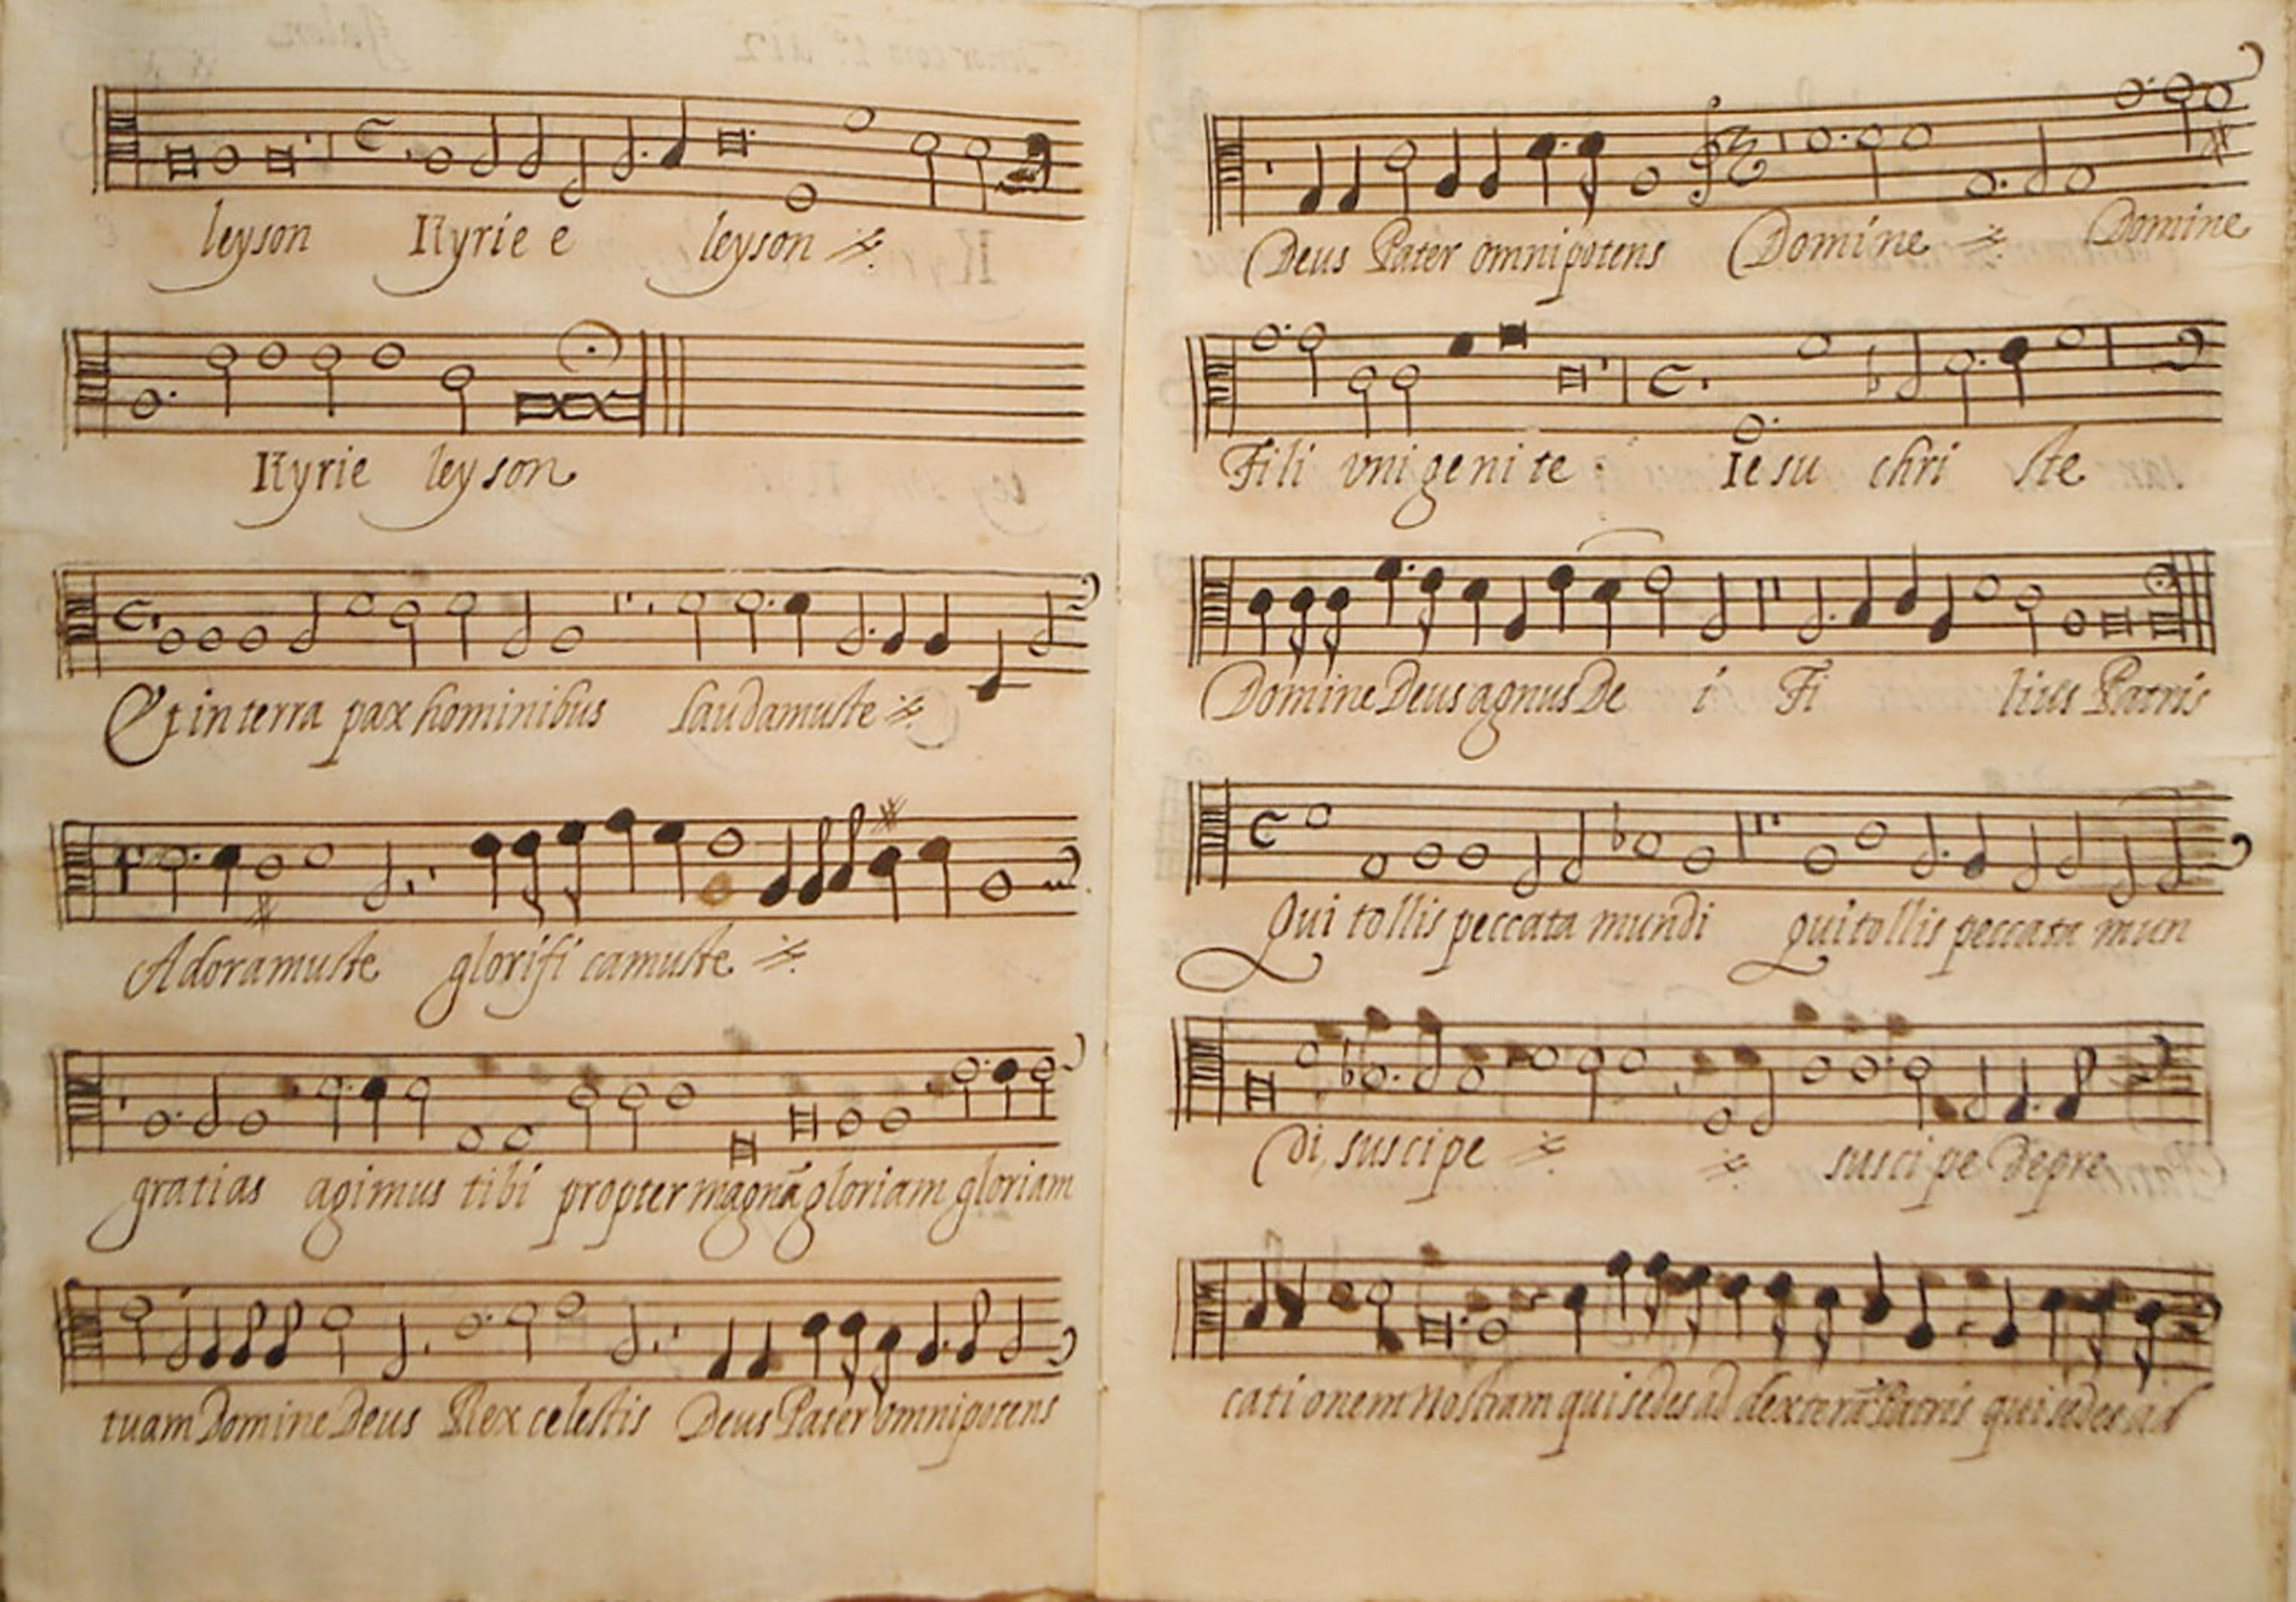 leyson Kyrie e leyson
Kyrie leyson
Et in terra pax hominibus Laudamus te
Adoramus te glorifi camus te
gratias agimus tibi propter magnã gloriam gloriam
tuam Domine Deus Rex celestis Deus Pater omnipotens
Deus Pater omnipotens Domine Domine
Fili vnigenite Iesu chri ste
Domine Deus agnus De i Fi lius Patris
Qui tollis peccata mundi qui tollis peccata mun
di, suscipe suscipe depre
cationem nostram qui sedes ad dexterã Patris qui sedes ad